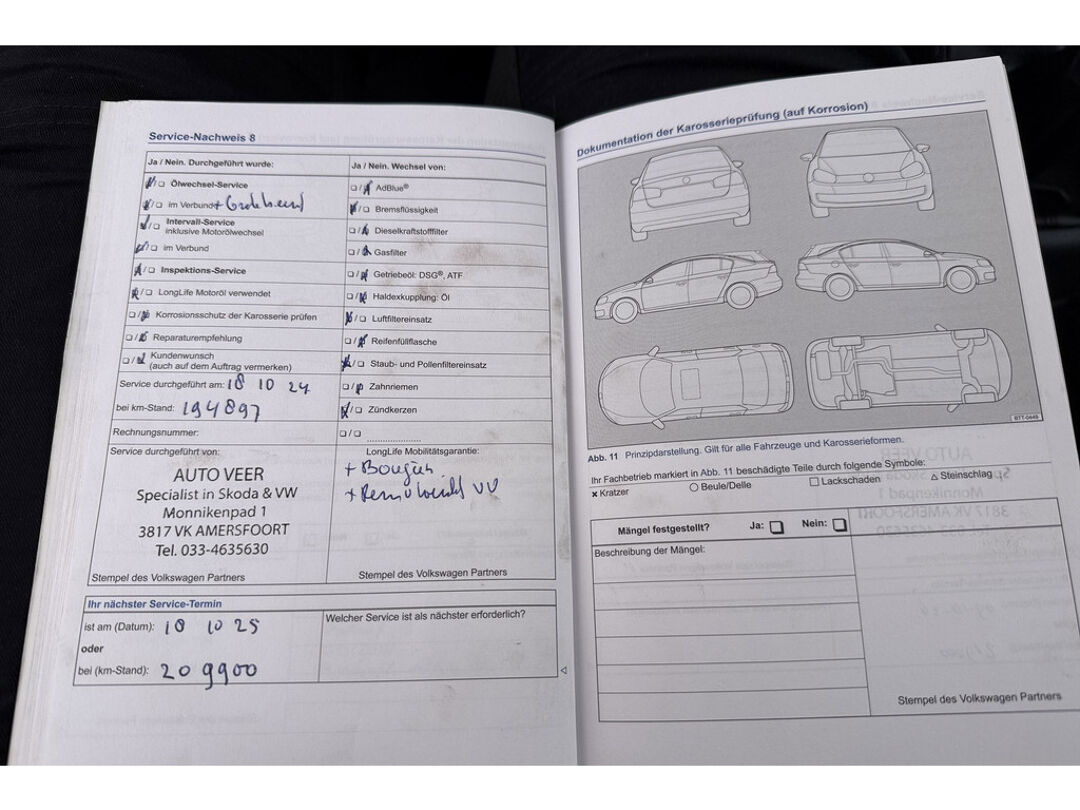 Service-Nachweis 8
Ja / Nein. Durchgeführt wurde:
Ölwechsel-Service
im Verbund +
Intervall-Service
inklusive Motorölwechsel
im Verbund
Inspektions-Service
LongLife Motoröl verwendet
Korrosionsschutz der Karosserie prüfen
Reparaturempfehlung
Kundenwunsch
(auch auf dem Auftrag vermerken)
Service durchgeführt am: 18 10 24
bei km-Stand: 194897
Rechnungsnummer:
Service durchgeführt von:
AUTO VEER
Specialist in Skoda & VW
Monnikenpad 1
3817 VK AMERSFOORT
Tel. 033-4635630
Stempel des Volkswagen Partners
Ja / Nein. Wechsel von:
AdBlue®
Bremsflüssigkeit
Dieselkraftstofffilter
Gasfilter
Getriebeöl: DSG®, ATF
Haldexkupplung: Öl
Luftfiltereinsatz
Reifenfüllflasche
Staub- und Pollenfiltereinsatz
Zahnriemen
Zündkerzen
LongLife Mobilitätsgarantie:
+ Bougies
+ Remvloeistof VV
Stempel des Volkswagen Partners
Ihr nächster Service-Termin
ist am (Datum): 18 10 25
oder
bei (km-Stand): 209900
Welcher Service ist als nächster erforderlich?
Dokumentation der Karosserieprüfung (auf Korrosion)
BTT-0449
Abb. 11 Prinzipdarstellung. Gilt für alle Fahrzeuge und Karosserieformen.
Ihr Fachbetrieb markiert in Abb. 11 beschädigte Teile durch folgende Symbole:
× Kratzer ○ Beule/Delle □ Lackschaden △ Steinschlag
Mängel festgestellt? Ja: □ Nein: □
Beschreibung der Mängel:
Stempel des Volkswagen Partners